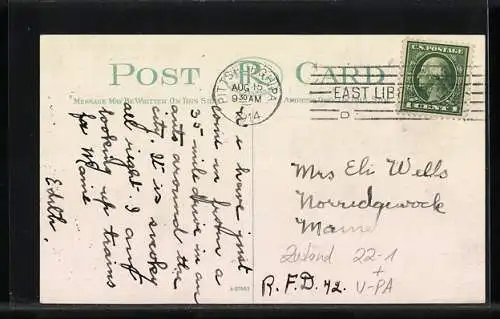 POST CARD
MESSAGE MAY BE WRITTEN ON THIS SIDE
PITTSBURGH, PA.
AUG 15
9 30 AM
1914
EAST LIB
D
U.S. POSTAGE
1 CENT 1
I have just
come in from a
35 mile drive in an
auto around the
city. It is smoky
all right. I am
looking up trains
for Maine
Edith.
Mrs Eli Wells
Norridgewock
Maine
Zustand 22-1
+
R.F.D. 42. V-PA